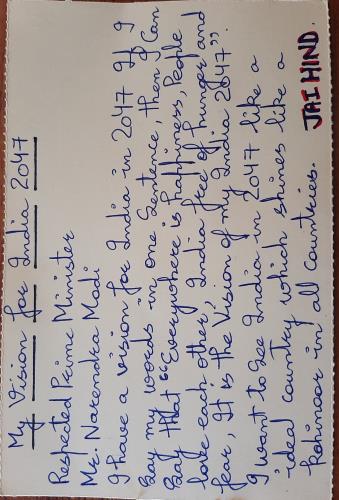 My Vision for India 2047
Respected Prime Minister
Mr. Narendra Modi
I have a vision for India in 2047 If I
Say my words in one Sentence, then I Can
Say that "Everywhere is happiness, People
love each other, India free of hunger and
fear, It is the Vision of my India 2047".
I want to see India in 2047 like a
ideal country which shines like a
Kohinoor in all countries. JAI HIND.